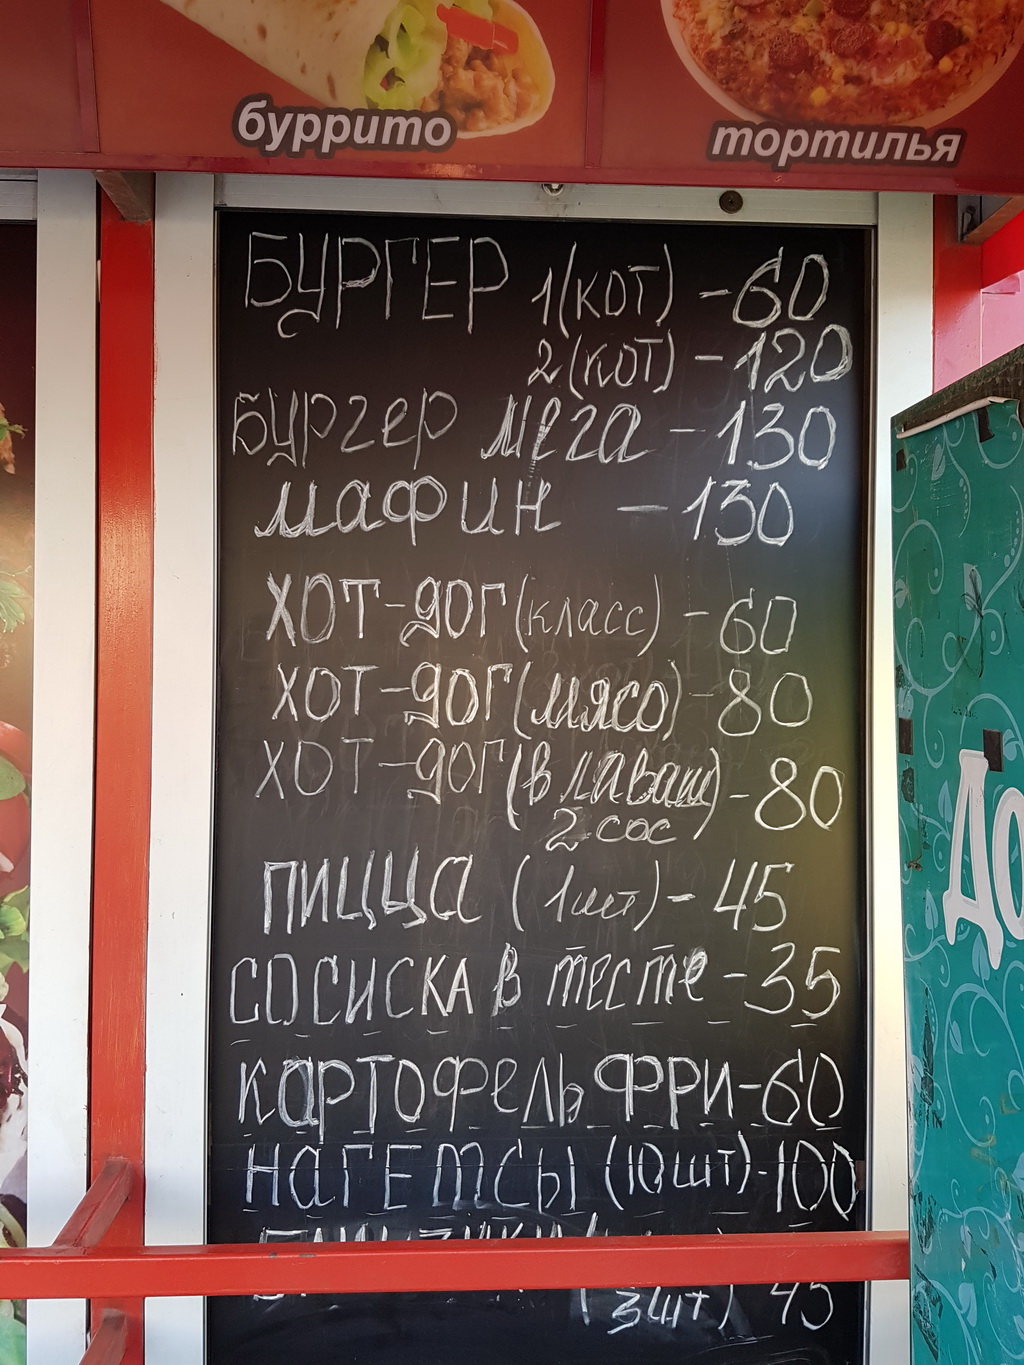 буррито
тортилья
БУРГЕР 1(КОТ) - 60
2(КОТ) - 120
Бургер мега - 130
мафин - 130
ХОТ-ДОГ (класс) - 60
ХОТ-ДОГ (мясо) - 80
ХОТ-ДОГ (в лаваш) - 80
2 сос)
ПИЦЦА (1шт) - 45
СОСИСКА в тесте - 35
КАРТОФЕЛЬ ФРИ - 60
НАГЕТСЫ (10шт) - 100
(3шт) 45
До